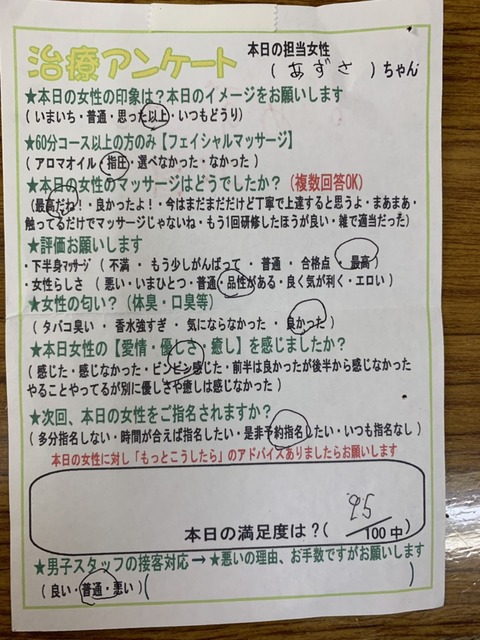 治療アンケート
本日の担当女性
( あずさ )ちゃん
★本日の女性の印象は？本日のイメージをお願いします
(いまいち・普通・思った以上・いつもどうり)
★60分コース以上の方のみ【フェイシャルマッサージ】
(アロマオイル・指圧・選べなかった・なかった)
★本日の女性のマッサージはどうでしたか？(複数回答OK)
(最高だね！・良かったよ！・今はまだまだだけど丁寧で上達すると思うよ・まあまあ・
触ってるだけでマッサージじゃないね・もう1回研修したほうが良い・雑で適当だった)
★評価お願いします
・下半身マッサージ (不満 ・ もう少しがんばって ・ 普通 ・ 合格点 ・ 最高)
・女性らしさ (悪い・いまひとつ・普通・品性がある・良く気が利く・エロい)
★女性の匂い？(体臭・口臭等)
(タバコ臭い ・ 香水強すぎ ・ 気にならなかった ・ 良かった)
★本日女性の【愛情・優しさ・癒し】を感じましたか？
(感じた・感じなかった・ビンビン感じた・前半は良かったが後半から感じなかった
やることやってるが別に優しさや癒しは感じなかった)
★次回、本日の女性をご指名されますか？
(多分指名しない・時間が合えば指名したい・是非予約指名したい・いつも指名なし)
本日の女性に対し「もっとこうしたら」のアドバイスありましたらお願いします
本日の満足度は？( 95/100中)
★男子スタッフの接客対応→★悪いの理由、お手数ですがお願いします
(良い・普通・悪い)( )